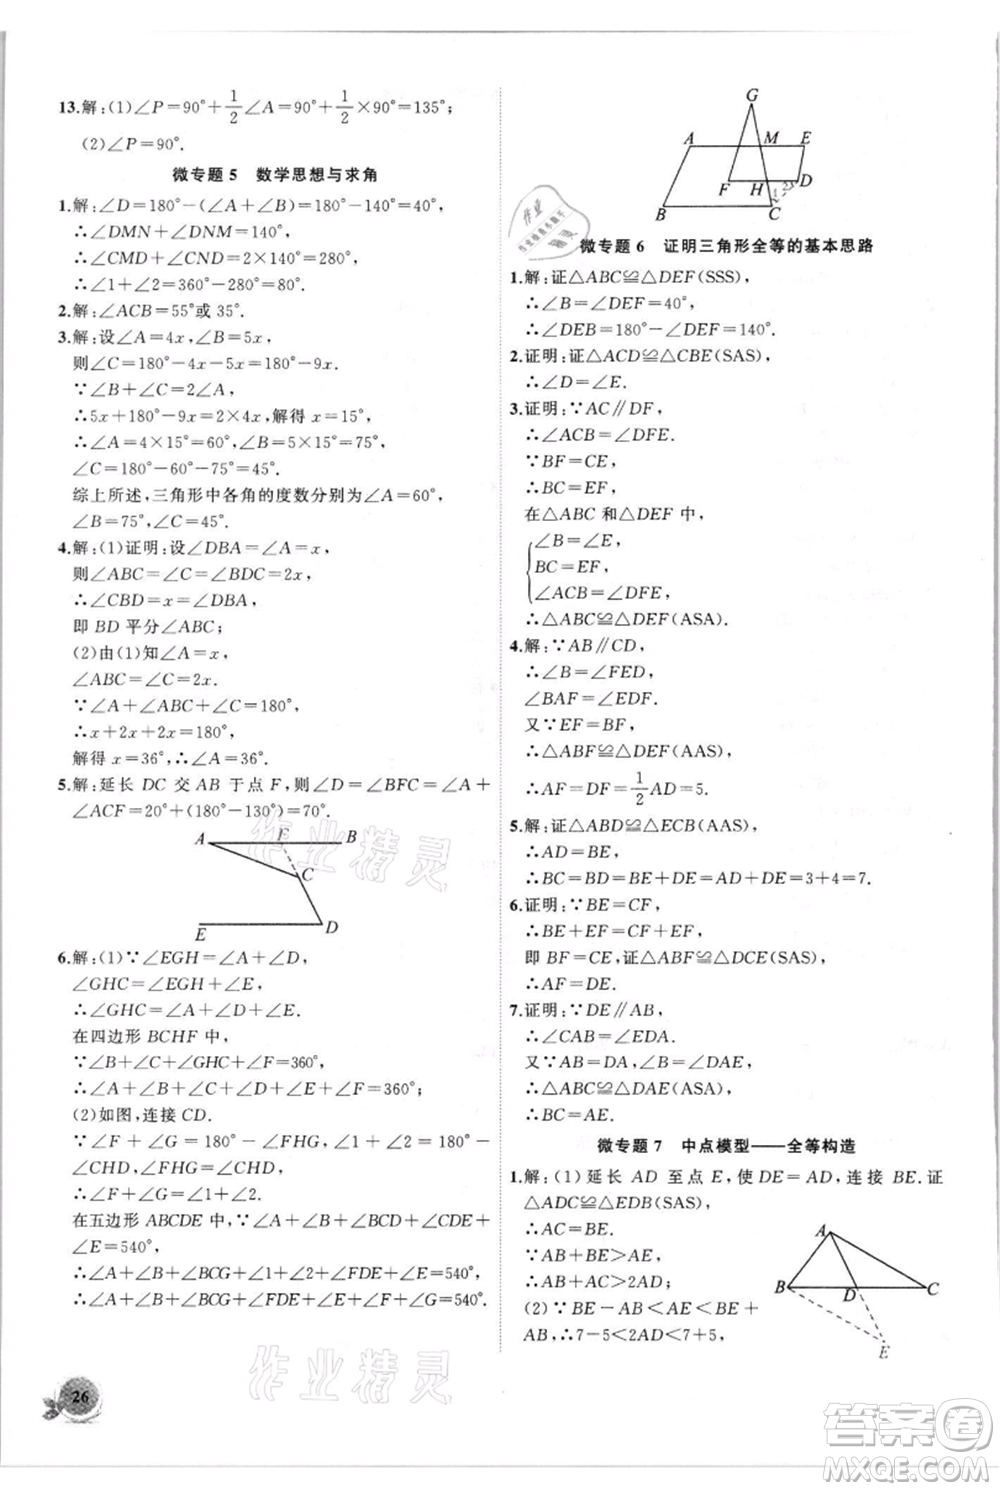 13.解:(1)∠P=90°+1/2∠A=90°+1/2×90°=135°;
(2)∠P=90°.
微专题5 数学思想与求角
1.解:∠D=180°-(∠A+∠B)=180°-140°=40°,
∴∠DMN+∠DNM=180°-40°=140°,
∴∠CMD+∠CND=140°,
∴∠1+∠2=360°-280°=80°.
2.解:∠ACB=55°或35°.
3.解:设∠A=4x,∠B=5x,
则∠C=180°-4x-5x=180°-9x,
∵∠B+∠C=2∠A,
∴5x+180°-9x=2×4x,解得x=15°,
∴∠A=4×15°=60°,∠B=5×15°=75°,
∠C=180°-60°-75°=45°.
综上所述,三角形中各角的度数分别为∠A=60°,
∠B=75°,∠C=45°.
4.解:(1)证明:设∠DBA=∠A=x,
则∠ABC=∠C=∠BDC=2x,
∴∠CBD=x=∠DBA,
即BD平分∠ABC;
(2)由(1)知∠A=x,
∠ABC=∠C=2x.
∵∠A+∠ABC+∠C=180°,
∴x+2x+2x=180°,
解得x=36°,∴∠A=36°.
5.解:延长DC交AB于点F,则∠D=∠BFC=∠A+
∠ACF=20°+(180°-130°)=70°.
A F B
C
E D
6.解:(1)∵∠EGH=∠A+∠D,
∠GHC=∠EGH+∠E,
∴∠GHC=∠A+∠D+∠E.
在四边形BCHF中,
∵∠B+∠C+∠GHC+∠F=360°,
∴∠A+∠B+∠C+∠D+∠E+∠F=360°;
(2)如图,连接CD.
∵∠F+∠G=180°-∠FHG,∠1+∠2=180°
-∠CHD,∠FHG=∠CHD,
∴∠F+∠G=∠1+∠2.
在五边形ABCDE中,∠A+∠B+∠BCD+∠CDE+
∠E=540°,
∴∠A+∠B+∠BCG+∠1+∠2+∠FDE+∠E=540°,
∴∠A+∠B+∠BCG+∠FDE+∠E+∠F+∠G=540°.
G
A M E
F H D
1 2
B C
微专题6 证明三角形全等的基本思路
1.解:证△ABC≌△DEF(SSS),
∴∠B=∠DEF=40°,
∴∠DEB=180°-∠DEF=140°.
2.证明:证△ACD≌△CBE(SAS),
∴∠D=∠E.
3.证明:∵AC∥DF,
∴∠ACB=∠DFE.
∵BF=CE,
∴BC=EF.
在△ABC和△DEF中,
∠B=∠E,
BC=EF,
∠ACB=∠DFE,
∴△ABC≌△DEF(ASA).
4.解:∵AB∥CD,
∴∠B=∠FED,
∠BAF=∠EDF.
又∵EF=BF,
∴△ABF≌△DEF(AAS),
∴AF=DF=1/2AD=5.
5.解:证△ABD≌△ECB(AAS),
∴AD=BE,
∴BC=BD=BE+DE=AD+DE=3+4=7.
6.证明:∵BE=CF,
∴BE+EF=CF+EF,
即BF=CE,证△ABF≌△DCE(SAS),
∴AF=DE.
7.证明:∵DE∥AB,
∴∠CAB=∠EDA.
又∵AB=DA,∠B=∠DAE,
∴△ABC≌△DAE(ASA),
∴BC=AE.
微专题7 中点模型——全等构造
1.解:(1)延长AD至点E,使DE=AD,连接BE.证
△ADC≌△EDB(SAS),
∴AC=BE.
∵AB+BE>AE,
∴AB+AC>2AD;
(2)∵BE-AB<AE<BE+
AB,∴7-5<2AD<7+5,
A
B D C
E
26
作业精灵
作业精灵
答案卷
MXQE.COM